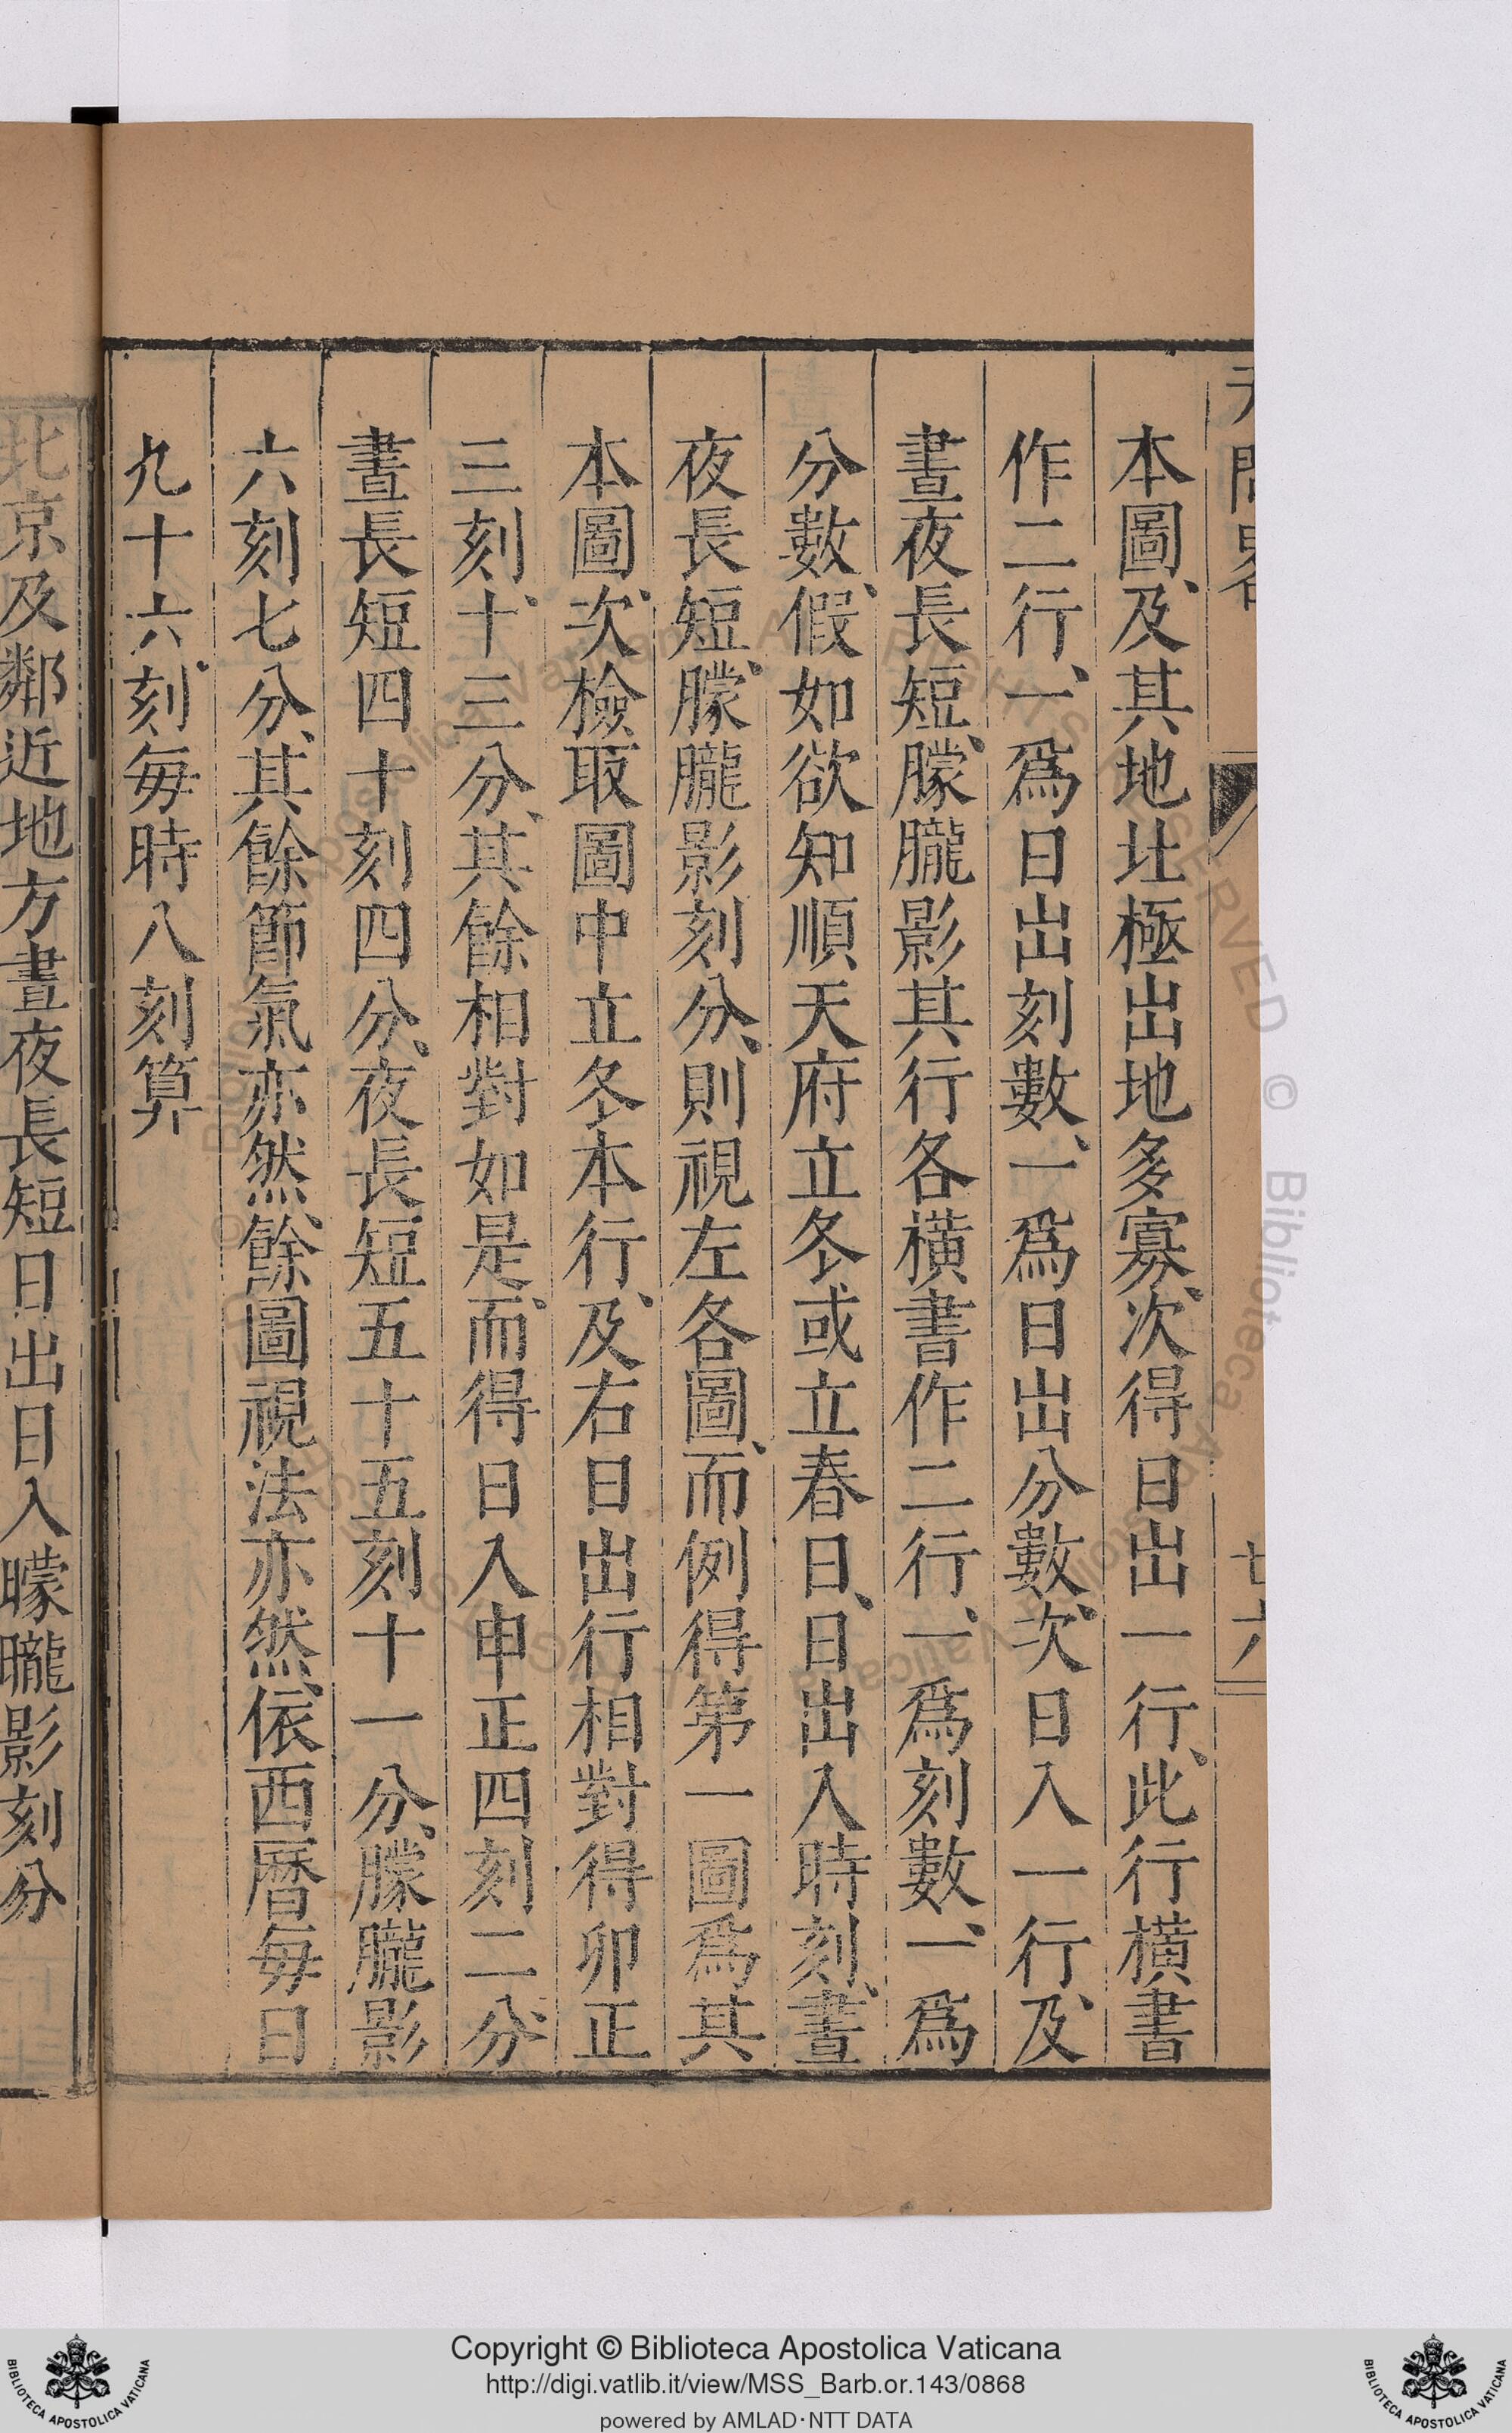 本圖、及其地北極出地多寡、次得日出一行、此行橫書
作二行、一爲日出刻數、一爲日出分數、次日入一行、及
晝夜長短、朦朧影其行各橫書作二行、一爲刻數、一爲
分數、假如欲知順天府立冬或立春日、日出入時刻、晝
夜長短、朦朧影刻分、則視左各圖、而例得第一圖爲其
本圖、次檢取圖中立冬本行、及右日出行相對得卯正
三刻、十三分、其餘相對如是、而得日入申正四刻二分、
晝長短四十刻四分、夜長短五十五刻十一分、朦朧影
六刻七分、其餘節氣亦然、餘圖視法亦然、依西曆每日
九十六刻、每時八刻算
北京及鄰近地方晝夜長短日出日入曚曨影刻分
Copyright © Biblioteca Apostolica Vaticana
http://digi.vatlib.it/view/MSS_Barb.or.143/0868
powered by AMLAD·NTT DATA
BIBLIOTECA APOSTOLICA VATICANA
BIBLIOTECA APOSTOLICA VATICANA